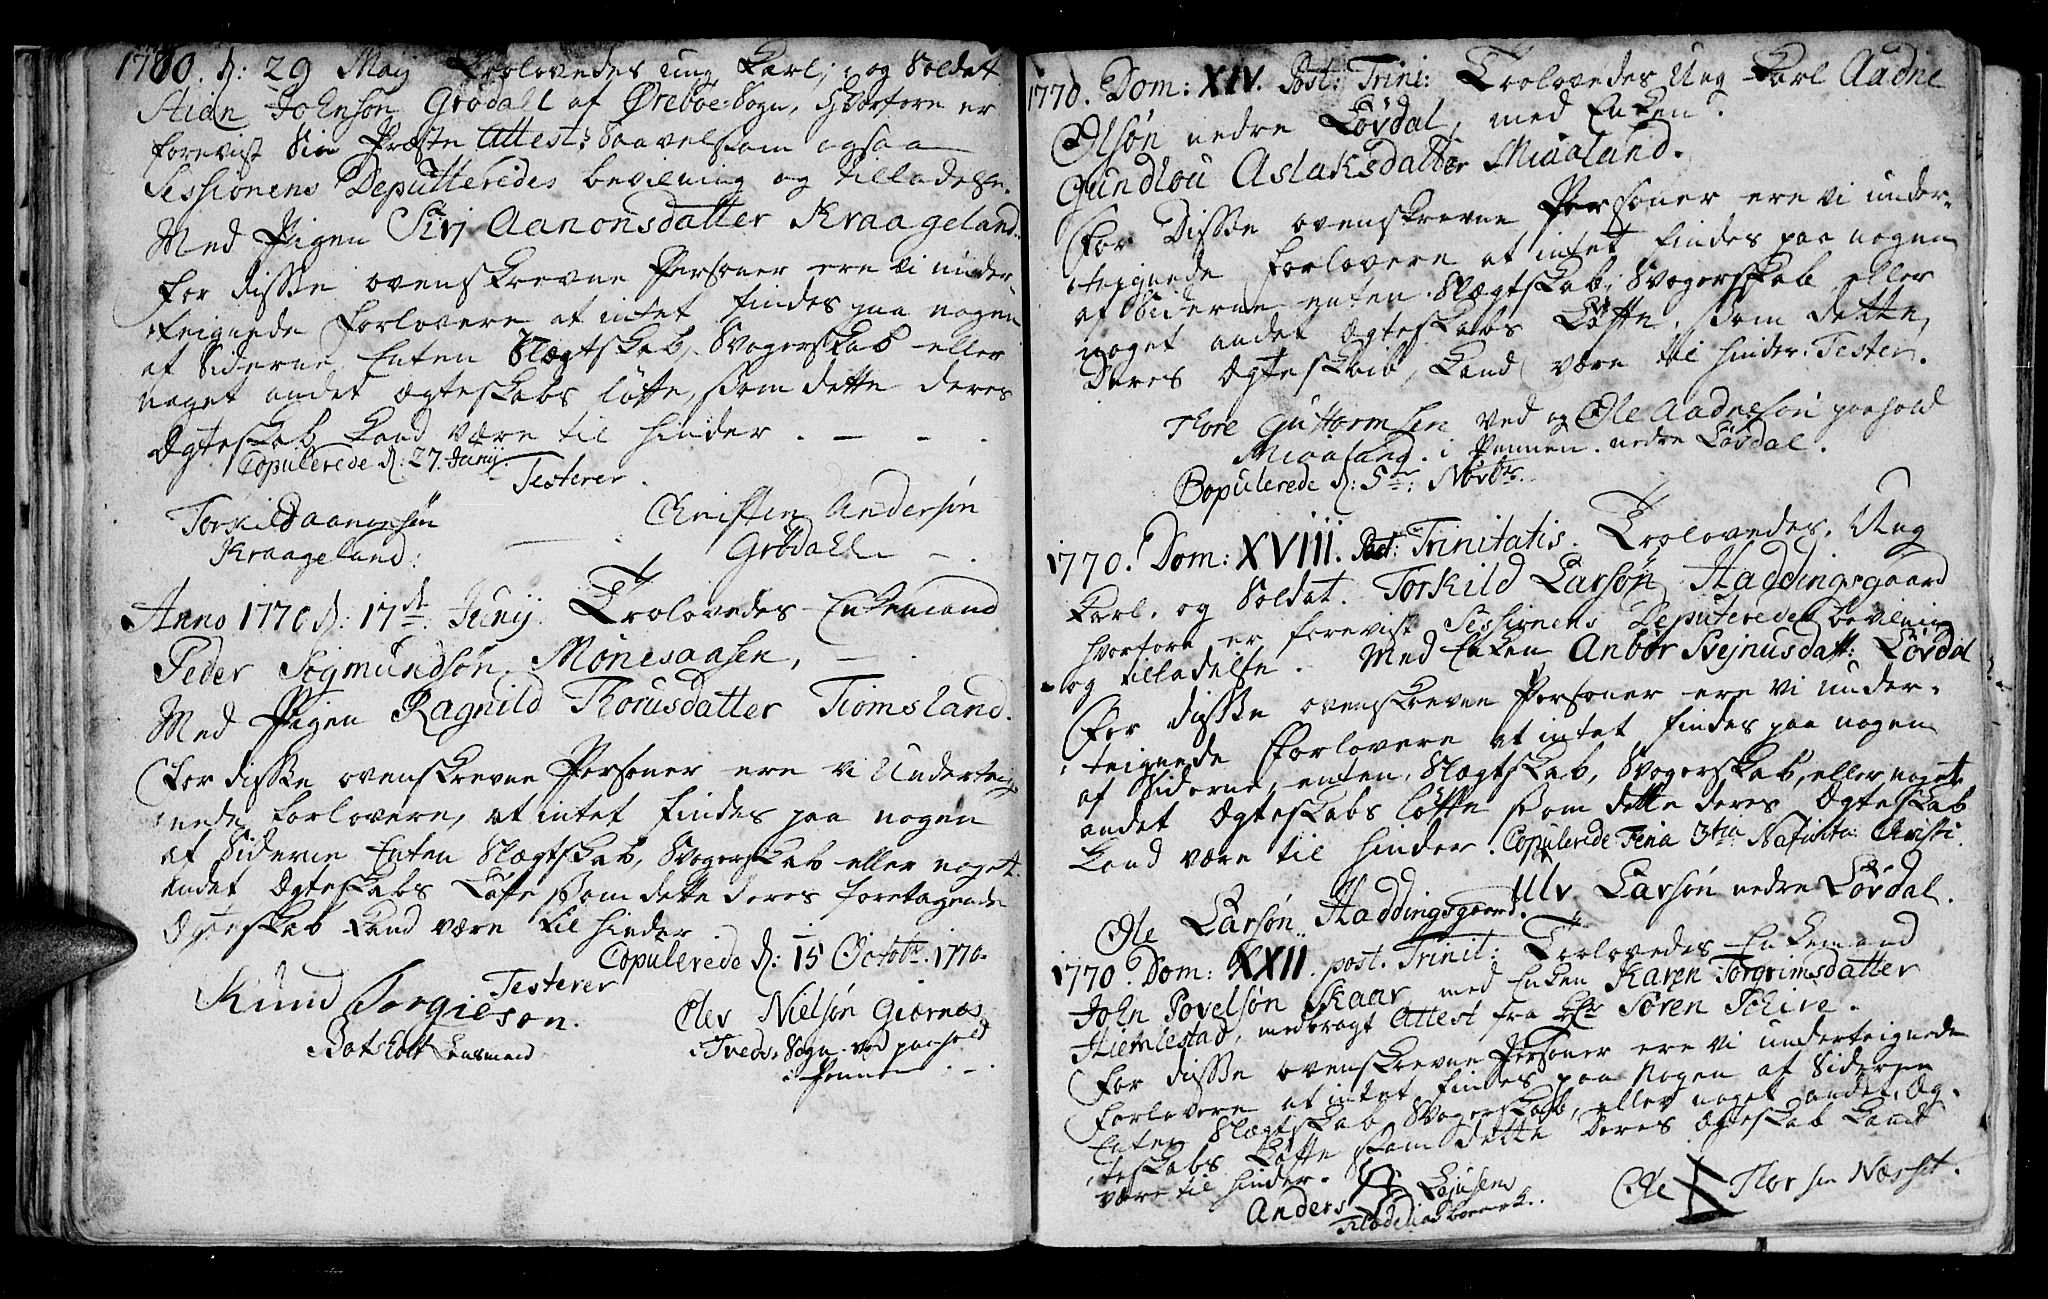 1780. d: 29 Maij Troelovedes ung Karl, og Soldatt
Stian Johnson Grødall af Øreboe-Sogn, hvorfore er
forevist Sin Præste Attest: Saavelsom ogsaa
Sessionens Deputteredes bevilning og tilladelse.
Med Pigen Sirj Aanonsdatter Kraageland.
For disse ovenskrevne Personer ere vi under-
teignede Forlovere at intet findes paa nogen
af Siderne Enten Slægtskab, Svogerskab eller
noget andet Ægteskabs løfte, som dette deres
Ægteskab kand være til hinder.
Copulerede d: 27. Junij.
Testerer.
Torkild aanonsøn
Kraageland:
Christen Andersøn
Grødall
Anno 1770 d: 17de Junij. Troelovedes Enkemand
Peder Sigmundsøn Mønesaasen,
Med Pigen Ragnild Thorusdatter Tiomsland.
For disse ovenskrevne Personer ere vi Underteig-
nede forlovere, at intet findes paa nogen
af Siderne Enten Slægtskab, Svogerskab eller noget
andet Ægteskabs Løfte som dette deres foretagende
Ægteskab kand være til hinder
Copulerede d: 15 Octobr. 1770.
Testerer
Knud Torgieson.
Botsholt Lensmand
Olev Nielsøn Giernæs
Tveds-Sogn ved paahold
i Pennen.
1770. Dom: XIV. Post: Trini: Troelovedes Ung Karl Aadne
Olsøn nedre Løvdal, med Enken
Gundlou Aslaksdatter Miaaland.
For Disse ovenskrevne Personer ere vi under-
teignede forlovere at intet findes paa nogen
af Siderne enten Slægtskab, Svogerskab eller
noget andet Ægteskabs Løfte, som dette,
Deres Ægteskab, kand være til hinder. Tester.
Thore Guttormsen ved og Ole Aadnesøn paahold
Miaaland. i Pennen. nedre Løvdal.
Copulerede d: 5te: Novbr.
1770. Dom: XVIII. Post: Trinitatis. Troelovedes. Ung
Karl. og Soldat. Torkild Larsøn Haddingsgaard
hvorfore er forevist Sessionens Deputeredes bevilning
og tilladelse. Med Enken Anbor Svejnusdatt: Løvdal
For disse ovenskrevne Personer ere vi under-
teignede Forlovere at intet findes paa nogen
af Siderne, enten Slægtskab, Svogerskab, eller noget
andet Ægteskabs løfte som dette deres Ægteskab
kand være til hinder. Copulerede Feria 3tia Nativita: Christi.
Ole Larsøn Haddingsgaard. Ulv Larsøn nedre Løvdal.
1770. Dom: XXII. post. Trinit: Troelovedes Enkemand
John Povelsøn Skaar med Enken Karen Torgrimsdatter
Hiemlestad, medbragt Attest fra Hr Søren Schive.
For disse ovenskrevne Personer ere vi underteignede
Forlovere at intet findes paa Nogen af Siderne
Enten Slægtskab Svogerskab, eller noget andet, Æg-
teskabs Løfte som dette Deres Ægteskab kand
være til hinder.
Anders
Ole Thorsen Næset.